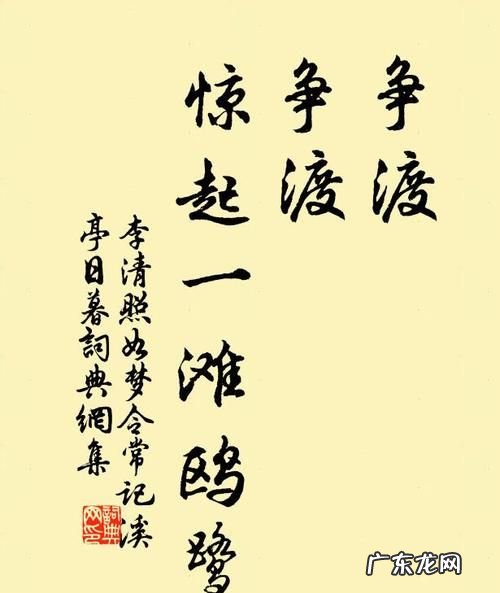 争渡
争渡
惊起一滩鸥鹭
李清照如梦令常记溪
亭日暮詞典網集
詞典網印
广东龙网